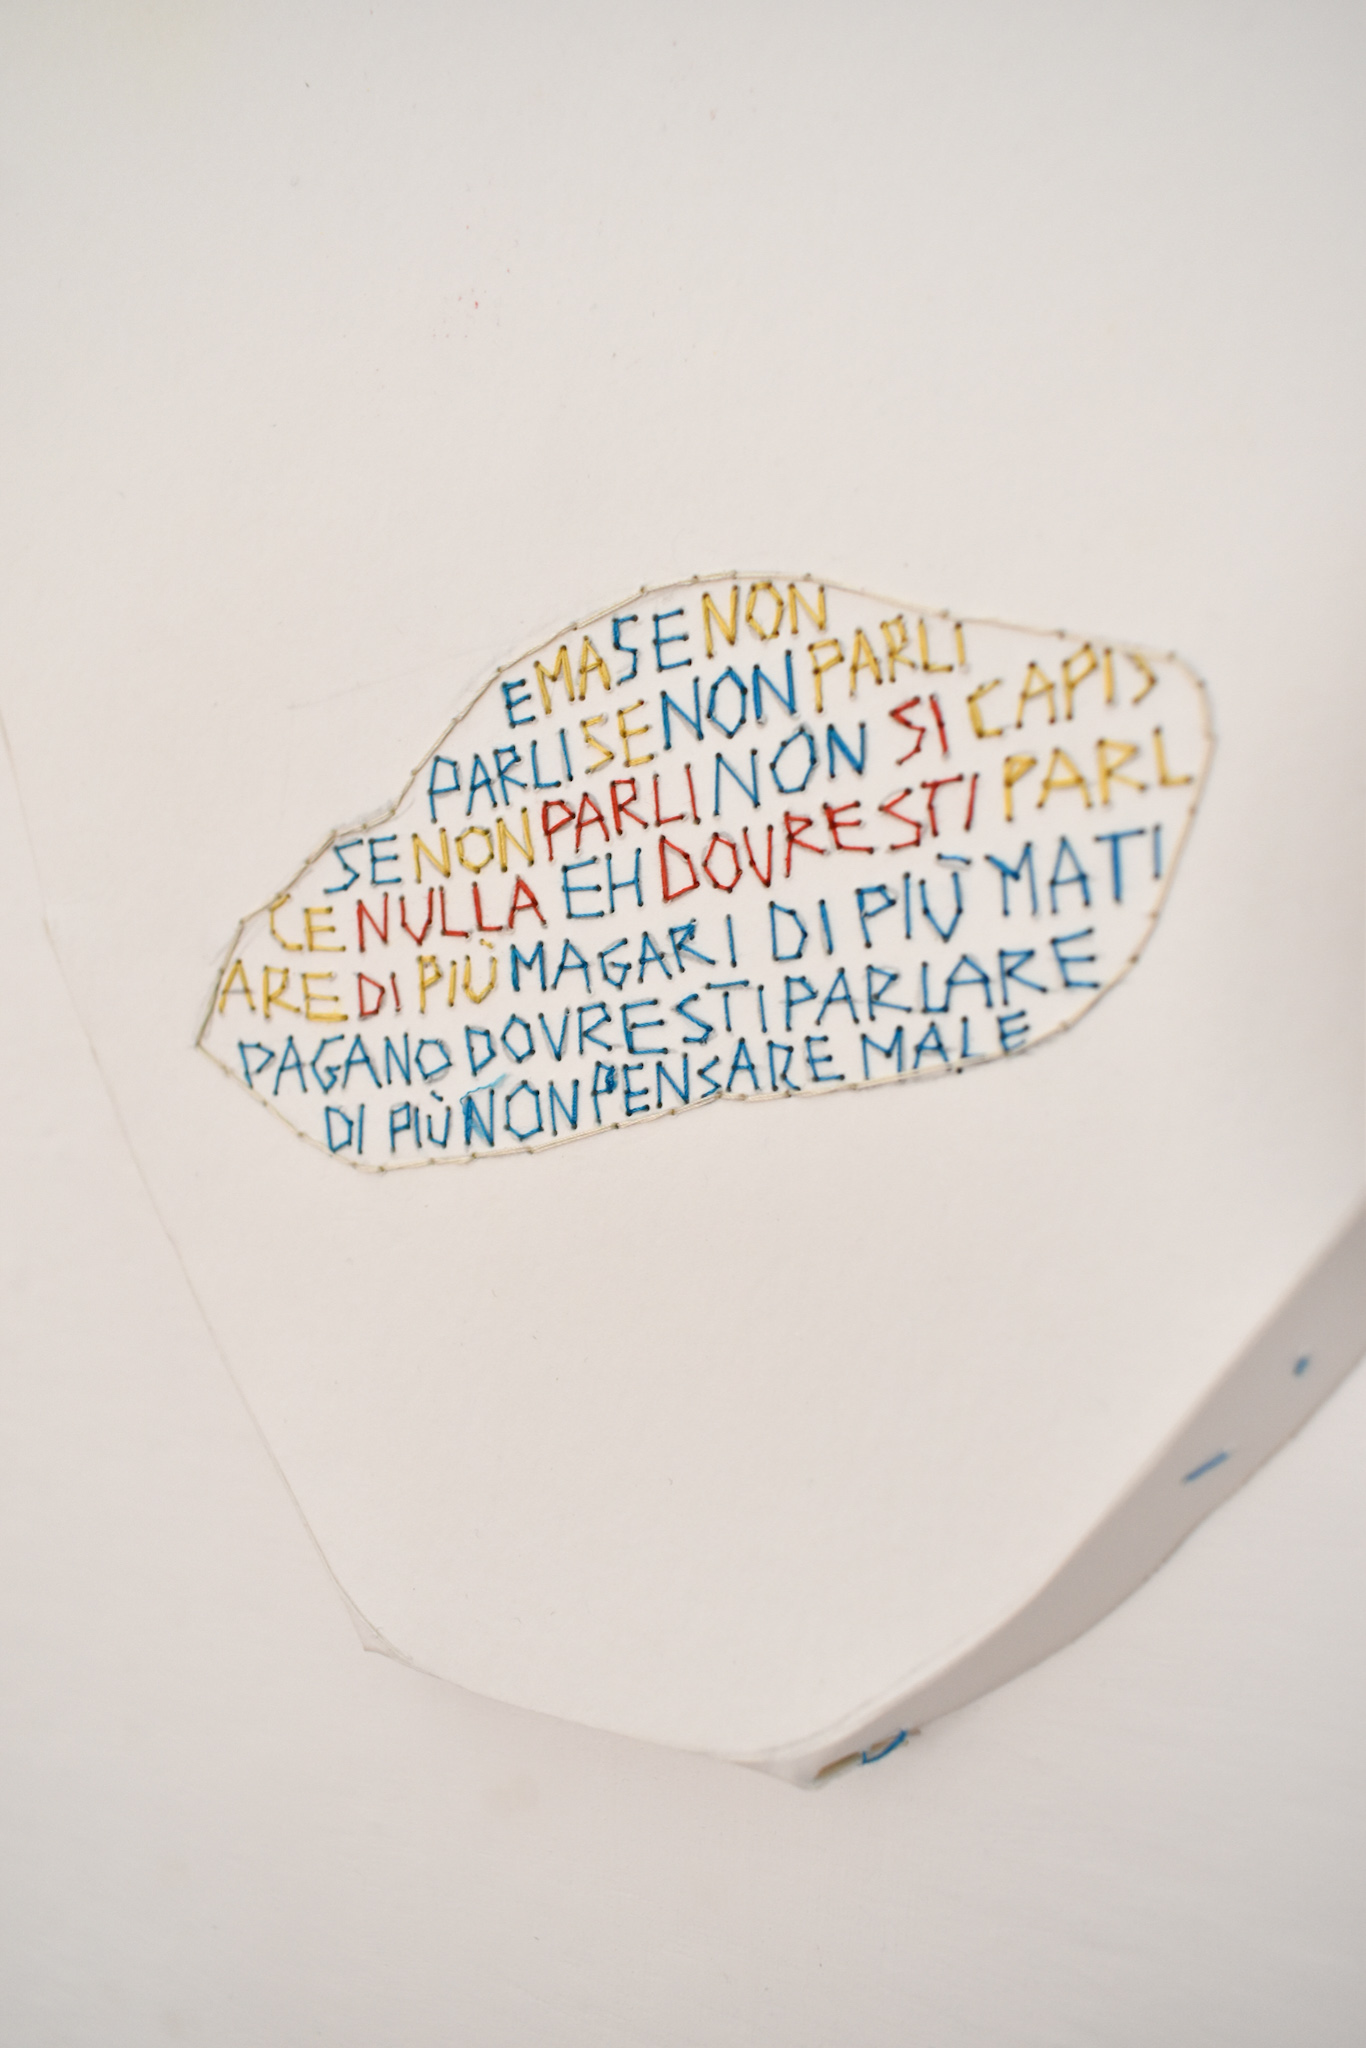 E MA SE NON
PARLI SE NON PARLI
SE NON PARLI NON SI CAPIS
CE NULLA EH DOVRESTI PARL
ARE DI PIÙ MAGARI DI PIÙ MA TI
PAGANO DOVRESTI PARLARE
DI PIÙ NON PENSARE MALE